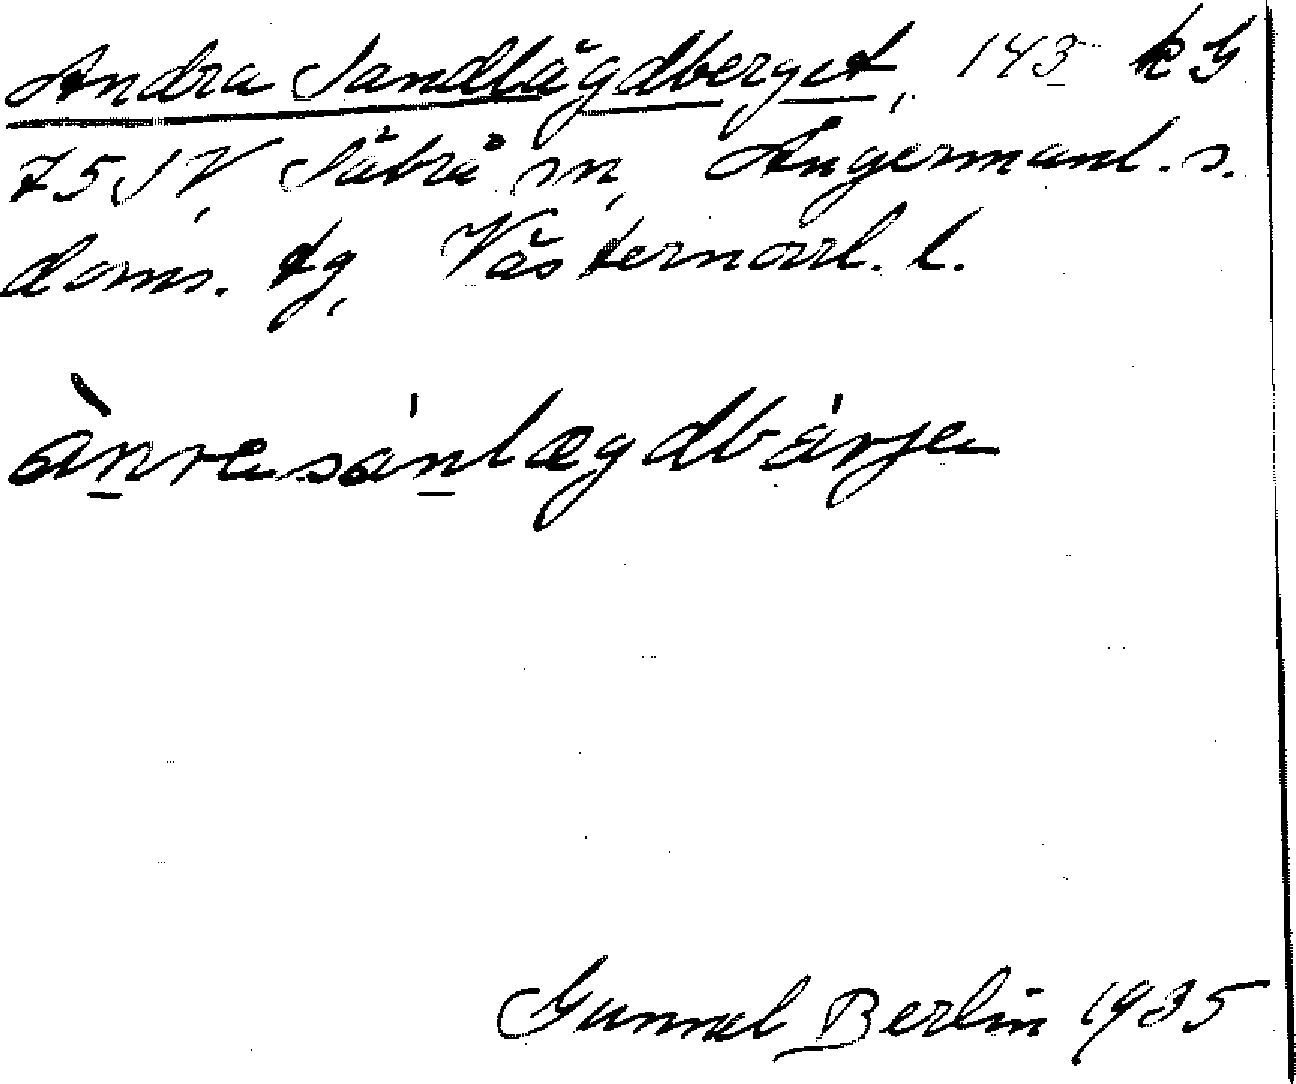 Andra Sandlägdberget, 143 kG
75 SV, Säbrå sn, Ångermanl. s.
doms. tg, Västernorrl. l.
ànrasánlægdbárjẹ
Gunnel Berlin 1935